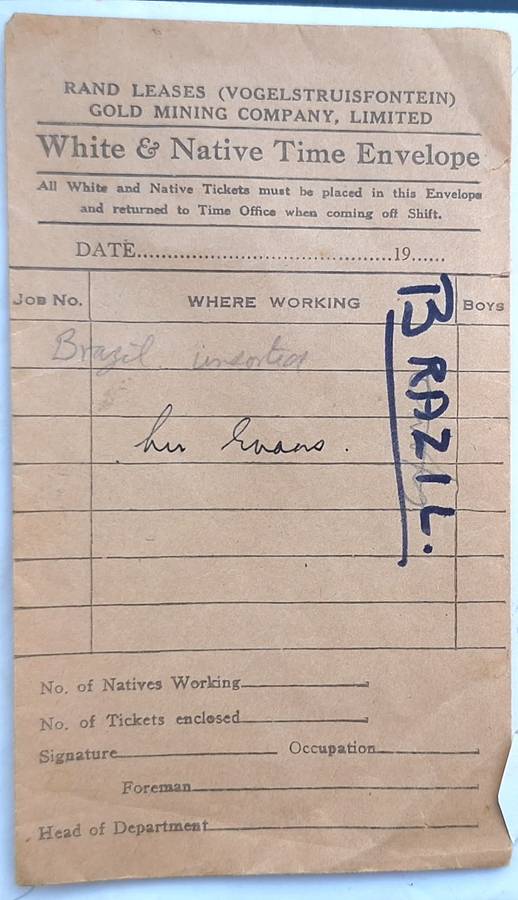 RAND LEASES (VOGELSTRUISFONTEIN)
GOLD MINING COMPANY, LIMITED
White & Native Time Envelope
All White and Native Tickets must be placed in this Envelope
and returned to Time Office when coming off Shift.
DATE.........................................19......
JOB NO. WHERE WORKING BOYS
Brazil unsorted
BRAZIL.
Evans.
No. of Natives Working
No. of Tickets enclosed
Signature Occupation
Foreman
Head of Department